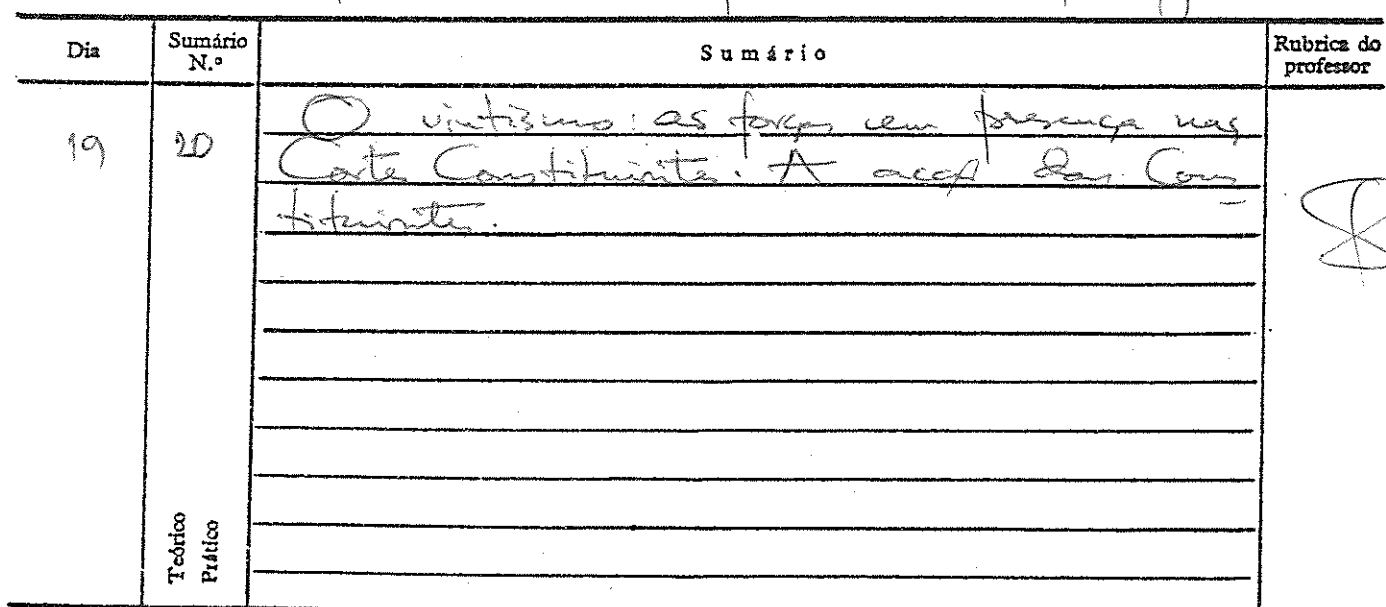 Dia
Sumário N.º
Sumário
Rubrica do professor
19
20
O vintismo: as forças em presença nas
Cortes Constituintes. A acção das Cons
tituintes.
Teórico
Prático